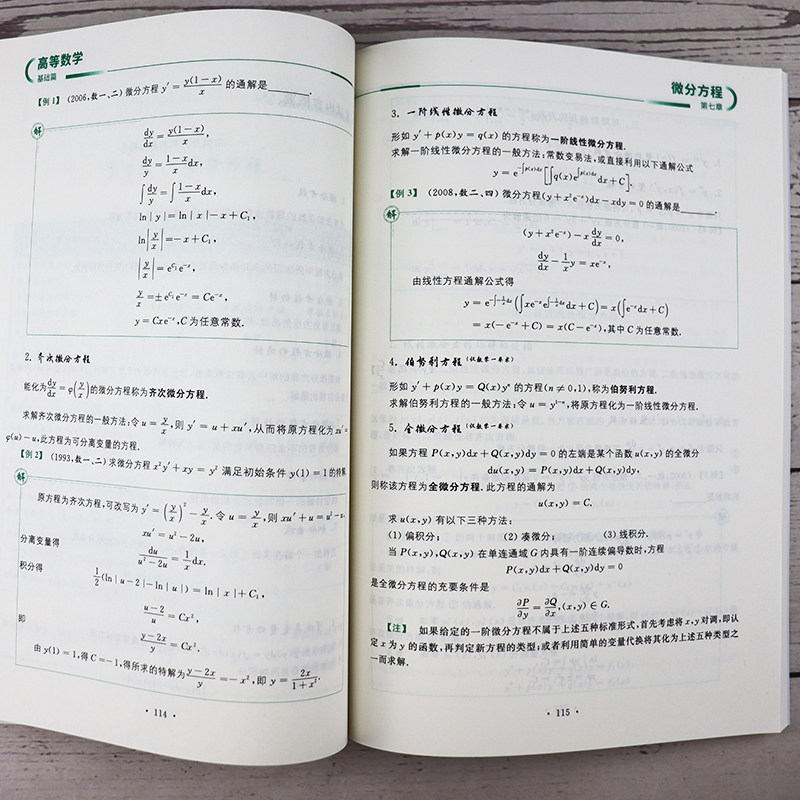 高等数学
基础篇
【例 1】 (2006,数一、二)微分方程 y′ = y(1−x)/x 的通解是________.
解
dy/dx = y(1−x)/x,
dy/y = (1−x)/x dx,
∫dy/y = ∫(1−x)/x dx,
ln | y | = ln | x | − x + C₁,
ln |y/x| = −x + C₁,
|y/x| = e^{C₁}e^{−x},
y/x = ± e^{C₁}e^{−x} = Ce^{−x},
y = Cxe^{−x}, C 为任意常数.
2. 齐次微分方程
能化为 dy/dx = φ(y/x) 的微分方程称为齐次微分方程.
求解齐次微分方程的一般方法:令 u = y/x, 则 y′ = u + xu′, 从而将原方程化为 xu′ =
φ(u) − u, 此方程为可分离变量的方程.
【例 2】 (1993,数一、二)求微分方程 x²y′ + xy = y² 满足初始条件 y(1) = 1 的特解.
解
原方程为齐次方程,可改写为 y′ = (y/x)² − y/x. 令 u = y/x, 则 xu′ + u = u² − u,
xu′ = u² − 2u,
分离变量得
du/(u² − 2u) = 1/x dx,
积分得
1/2 (ln | u − 2 | − ln | u |) = ln | x | + C₁,
(u − 2)/u = Cx²,
即
(y − 2x)/y = Cx²,
由 y(1) = 1, 得 C = −1, 得所求的特解为 (y − 2x)/y = −x², 即 y = 2x/(1 + x²).
· 114 ·
微分方程
第七章
3. 一阶线性微分方程
形如 y′ + p(x)y = q(x) 的方程称为一阶线性微分方程.
求解一阶线性微分方程的一般方法:常数变易法,或直接利用以下通解公式
y = e^{−∫p(x)dx}[∫q(x)e^{∫p(x)dx}dx + C].
【例 3】 (2008,数二、四)微分方程(y + x²e^{−x})dx − xdy = 0 的通解是________.
解
(y + x²e^{−x}) − x dy/dx = 0,
dy/dx − 1/x y = xe^{−x},
由线性方程通解公式得
y = e^{−∫−1/x dx}(∫xe^{−x}e^{∫−1/x dx}dx + C) = x(∫e^{−x}dx + C)
= x(− e^{−x} + C) = x(C − e^{−x}), 其中 C 为任意常数.
4. 伯努利方程(仅数学一要求)
形如 y′ + p(x)y = Q(x)yⁿ 的方程(n ≠ 0,1), 称为伯努利方程.
求解伯努利方程的一般方法:令 u = y^{1−n}, 将原方程化为一阶线性微分方程.
5. 全微分方程(仅数学一要求)
如果方程 P(x,y)dx + Q(x,y)dy = 0 的左端是某个函数 u(x,y) 的全微分
du(x,y) = P(x,y)dx + Q(x,y)dy,
则称该方程为全微分方程. 此方程的通解为
u(x,y) = C.
求 u(x,y) 有以下三种方法:
(1) 偏积分; (2) 凑微分; (3) 线积分.
当 P(x,y), Q(x,y) 在单连通域 G 内具有一阶连续偏导数时,方程
P(x,y)dx + Q(x,y)dy = 0
是全微分方程的充要条件是
∂P/∂y = ∂Q/∂x, (x,y) ∈ G.
【注】 如果给定的一阶微分方程不属于上述五种标准形式,首先考虑将 x,y 对调,即认
定 x 为 y 的函数,再判定新方程的类型;或者利用简单的变量代换将其化为上述五种类型之
一而求解.
· 115 ·